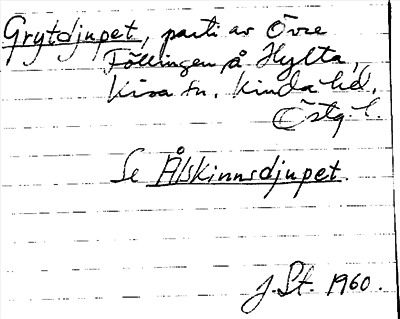 Grytdjupet, parti av Övre
Föllingen å Hylta,
Kisa sn. Kinda hd.
Östg. l.
Se Ålskinnsdjupet.
J. St. 1960.